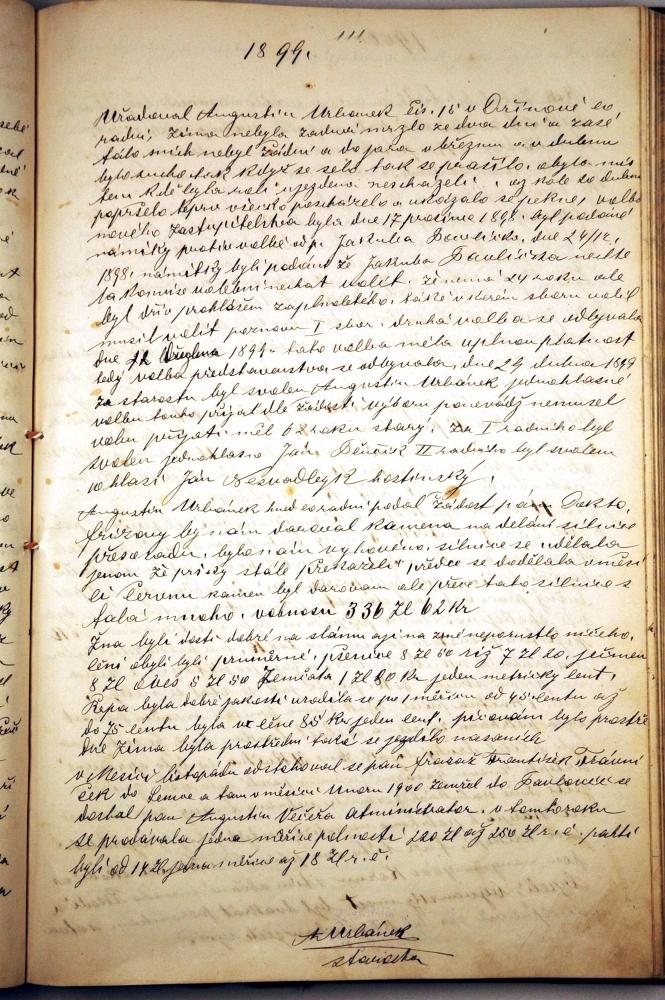 1899.
Uřadoval Augustin Urbanek čis. 15 v Oršinové co
radní, Zima nebyla žadná mrzlo ze dva dni a zasé
tálo sních nebyl žádní a do jara v březnu a v dubnu
bylo sucho tak když se selo tak se prašilo, a bylo mis
tem kdě byla roli ujezdena nescházelo, až kole 20 dubna
popršelo teprv všecko poscházelo a ukázalo se pekně, volba
nového zastupitelstva byla dne 17 prosince 1898. byl podané
námitky protiv volbě odp. Jakuba Pavlíčka, dne 24/12.
1898. námitky byli podání že Jakuba Pavlíčka nechte
la komise volební nechat volit, že nemá 24 roku ale
byl dřív prohlášen zaplnoletého, také v kterém sboru volil
musil volit poznovu I sbor. druhá volba se odbyvala
dne 12 Března 1899. tato volba měla uplnou platnost
tedy volba představenstva se odbyvala, dne 24 dubna 1899
za starostu byl zvolen Augustin Urbánek jednohlasně
volbu tauto přijal dle žádosti výboru ponevádž nemusel
volbu přijati měl 62 roku starý. Za I radniho byl
zvolen jednohlasně Ján II radniho byl zvolen
10 hlasi Ján Nesvadbyk hostinský.
Augustin Urbánek hned co radní podal žádost pánu Dokto.
by nám daroval kamena na dělání silnice
přes ohradu, bylo nám vyhoveno, silnice se udělala
jenom že pršky stále překáželi předce se dodělala v mesi
ci Červnu kamen byl darovan ale přece tato silnice s
tála mnoho, vobnosu 336 Zl 62 Kr
Žna byli dosti dobré na slámu aji na zrně neporustlo ničeho,
ceni obyli byli prumerné, pšenice 8 Zl 50 riž 7 Zl 20, ječmen
8 Zl oves 5 Zl 50 Zemčata 1 Zl 80 Kr jeden metrický cent,
Repa byla dobré jakosti urodila se po 1 měřici od 45 centu až
do 75 centu byla v céne 85 Kr jeden cent, picováni bylo prostře
dne Zima byla prostředni také se jezdilo na saních
v Mesici listopádu odstěhoval se pan František Trávní
ček do Lenve a tam v měsici Unoru 1900 Zemřel do Pavlovic se
dostal pan Augustin Večeřa Atministrator. v tomto roku
se prodávala jedna měřice polnosti 220 Zl až 250 Zl r. č. pasti
byli od 14 Zl jedna měřice až 18 Zl r. č.
A Urbánek
starosta